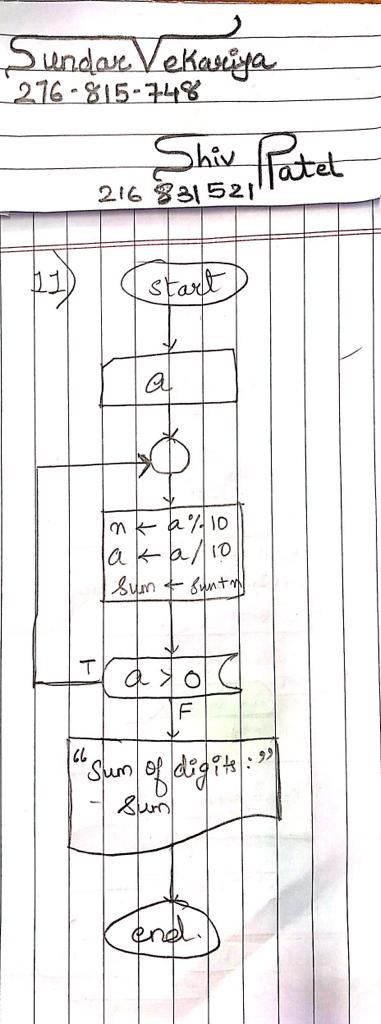 Sundar Vekariya
276-815-748
Shiv Patel
216 831521
11)
start
a
n ← a % 10
a ← a / 10
Sum ← sun+n
T
a > 0
F
“Sum of digits :”
- Sum
end.